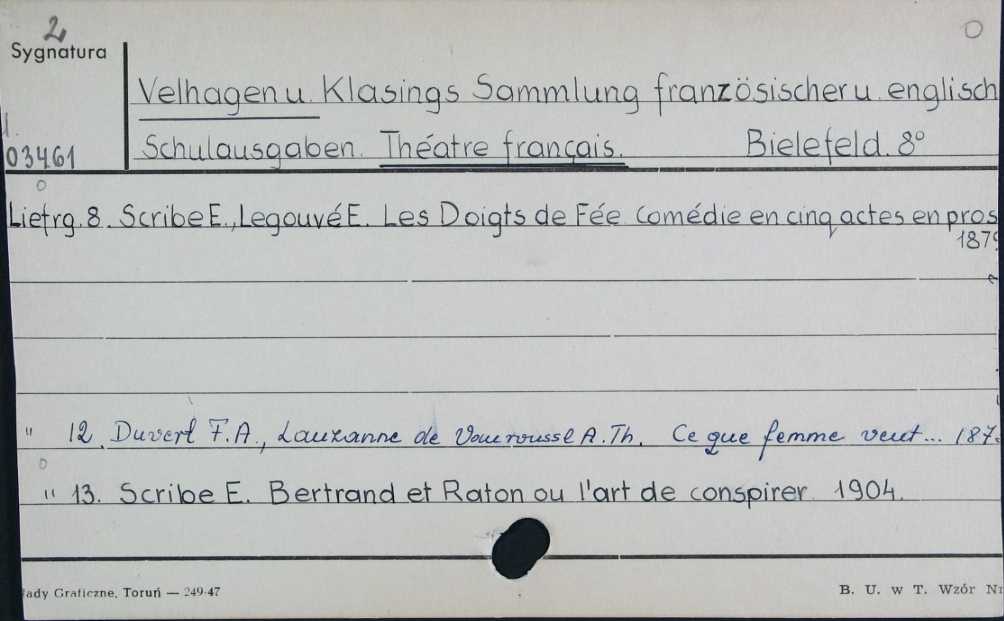 2
Sygnatura
Velhagen u. Klasings Sammlung französischer u. englisch
Schulausgaben. Théatre français. Bielefeld. 8°
03461
Liefrg. 8. Scribe E., Legouvé E. Les Doigts de Fée. Comédie en cinq actes en pros
1879
" 12. Duvert F.A., Lauzanne de A. Th. Ce que femme veut... 187
" 13. Scribe E. Bertrand et Raton ou l'art de conspirer 1904.
ady Graficzne, Toruń — 249-47
B. U. w T. Wzór Nr